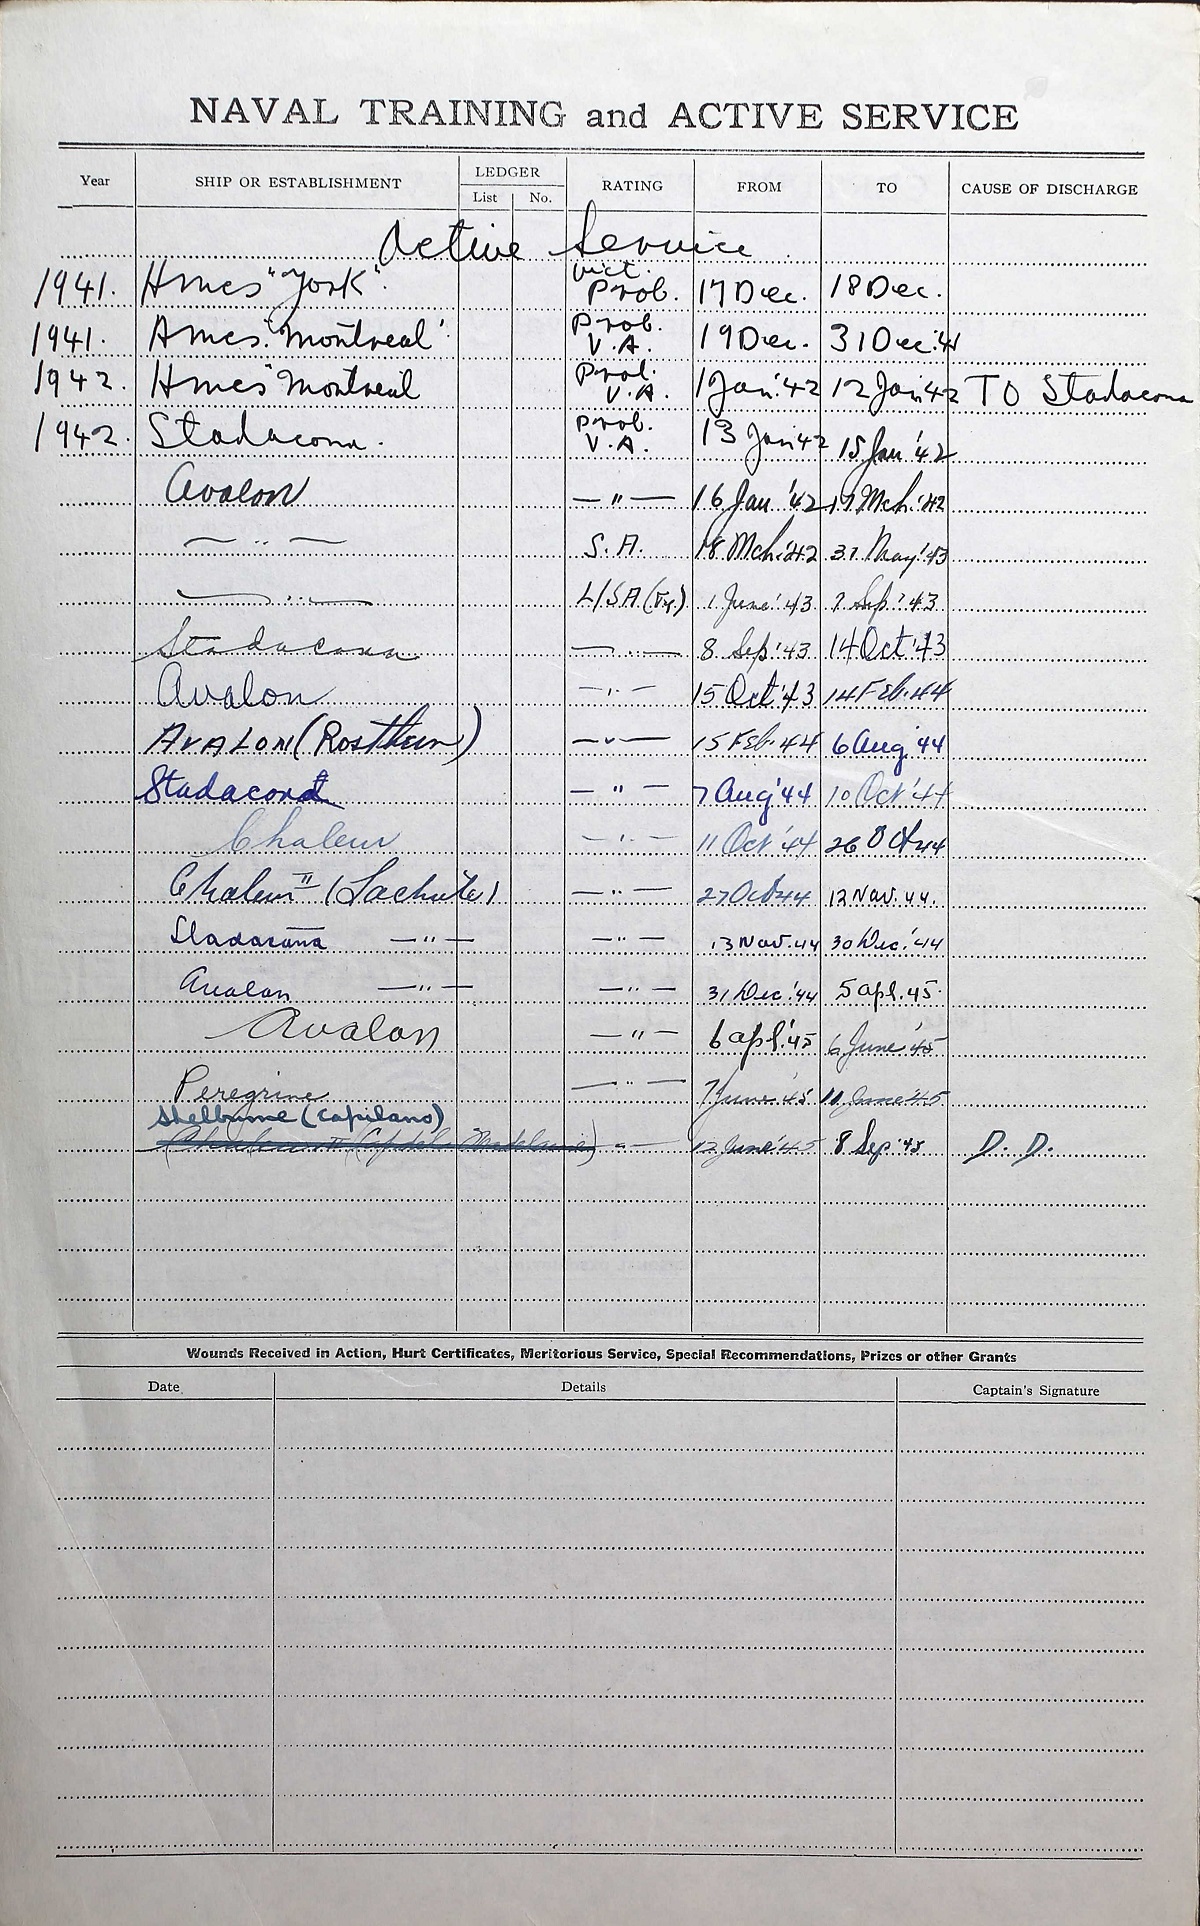 NAVAL TRAINING and ACTIVE SERVICE
Year SHIP OR ESTABLISHMENT LEDGER List No. RATING FROM TO CAUSE OF DISCHARGE
Active Service
1941. Hmcs "York". Vict. Prob. 17 Dec. 18 Dec.
1941. Hmcs. "Montreal" Prob. V.A. 19 Dec. 31 Dec. 41
1942. Hmcs "Montreal Prob. V.A. 1 Jan '42 12 Jan 42 TO Stadacona
1942. Stadacona. Prob. V.A. 13 Jan 42 15 Jan '42
Avalon — " — 16 Jan '42 17 Mch. '42
— " — S.A. 18 Mch. '42 31 May '43
— " — L/SA (Ty.) 1 June '43 7 Sep. '43
Stadacona — " — 8 Sep '43 14 Oct '43
Avalon — " — 15 Oct '43 14 Feb. 44
AVALON (Rosthern) — " — 15 Feb. 44 6 Aug '44
Stadacona — " — 7 Aug '44 10 Oct '44
Chaleur — " — 11 Oct '44 26 Oct 44
Chaleur II (Lachute) — " — 27 Oct 44 12 Nov. 44.
Stadacona — " — — " — 13 Nov. 44 30 Dec. '44
Avalon — " — — " — 31 Dec '44 5 apl. 45
Avalon — " — 6 apl. '45 6 June '45
Peregrine — " — 7 June '45 11 June '45
Shelburne (Capilano)
Chaleur II (Cap de la Madeleine) — " — 12 June '45 8 Sep '45 D. D.
Wounds Received in Action, Hurt Certificates, Meritorious Service, Special Recommendations, Prizes or other Grants
Date Details Captain's Signature